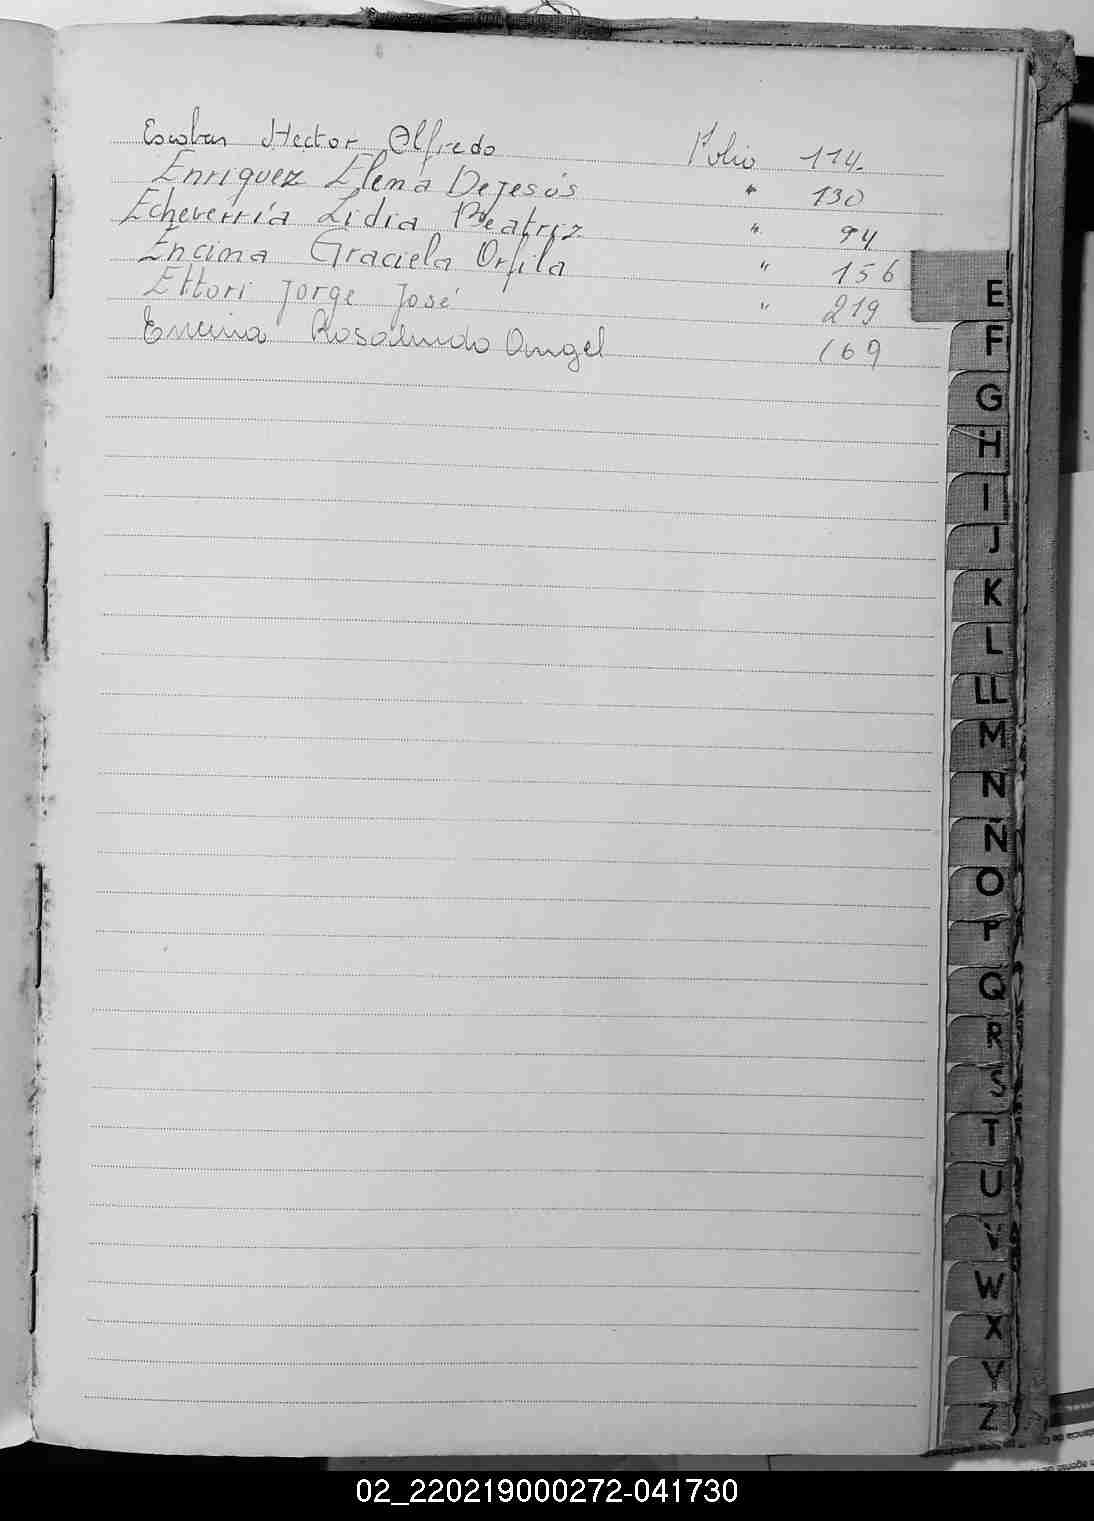 Escobar Hector Alfredo Folio 114.
Enriquez Elena Dejesús " 130
Echeverría Lidia Beatriz " 94
Encima Graciela Orfila " 156
Ettori Jorge José " 219
Encina Rosalindo Angel 169
E
F
G
H
I
J
K
L
LL
M
N
Ñ
O
P
Q
R
S
T
U
V
W
X
Y
Z
02_220219000272-041730